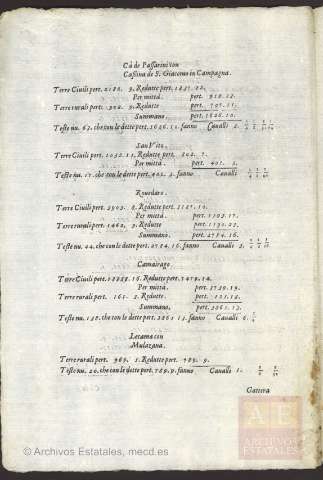 Cà de Passarini con
Cassina de S. Giacomo in Campagna.
Terre Civili pert. 2180. 9. Redutte pert. 1837. 22.
Per mittà. pert. 918. 23.
Terre rurali pert. 902. 9. Redutte pert. 707. 11.
Summano. pert. 1626. 10.
Teste nu. 67. che con le dette pert. 1626. 10. fanno Cavalli 2.
San Vito.
Terre Civili pert. 1032. 11. Redutte pert. 802. 7.
Per mittà. pert. 401. 3.
Teste nu. 17. che con le dette pert. 401. 3. fanno Cavalli
Terre Civili pert. 3903. 8. Redutte pert. 3187. 10.
Per mittà. pert. 1593. 17.
Terre rurali pert. 1462. 3. Redutte pert. 1190. 23.
Summano. pert. 2784. 16.
Teste nu. 44. che con le dette pert. 2784. 16. fanno Cavalli 3.
Camairago.
Per mittà. pert. 3739. 19.
Terre rurali pert. 161. 2. Redutte. pert. 121. 18.
Summano. pert. 3861. 13.
Teste nu. 138. che con le dette pert. 3861 13. fanno Cavalli 6.
Lecama con
Mulazana.
Terre rurali pert. 969. 1. Redutte pert. 789. 9.
Teste nu. 20. che con le dette pert. 789. 9. fanno Cavalli 1.
Gattera
AE
ARCHIVOS
ESTATALES
© Archivos Estatales, mecd.es